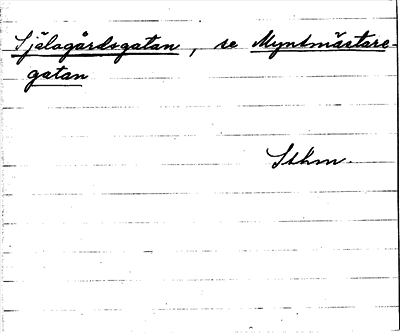 Själagårdsgatan, se Myntmästare-
gatan
Sthm.